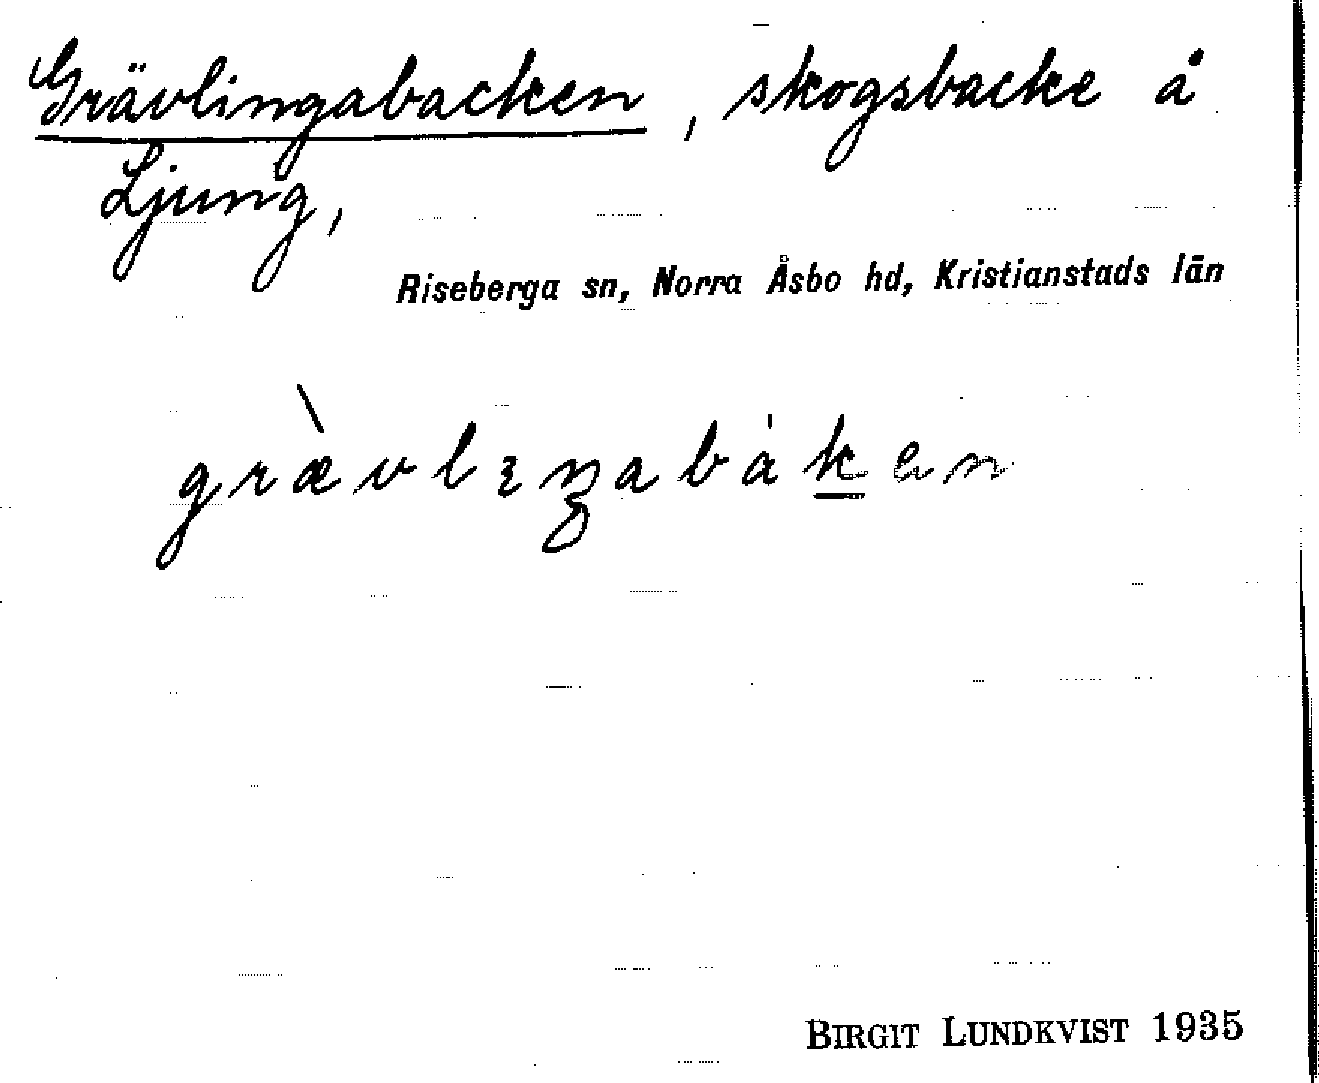 Grävlingabacken, skogsbacke å
Ljung,
Riseberga sn, Norra Åsbo hd, Kristianstads län
græ̀vlıŋabáḵen
BIRGIT LUNDKVIST 1935